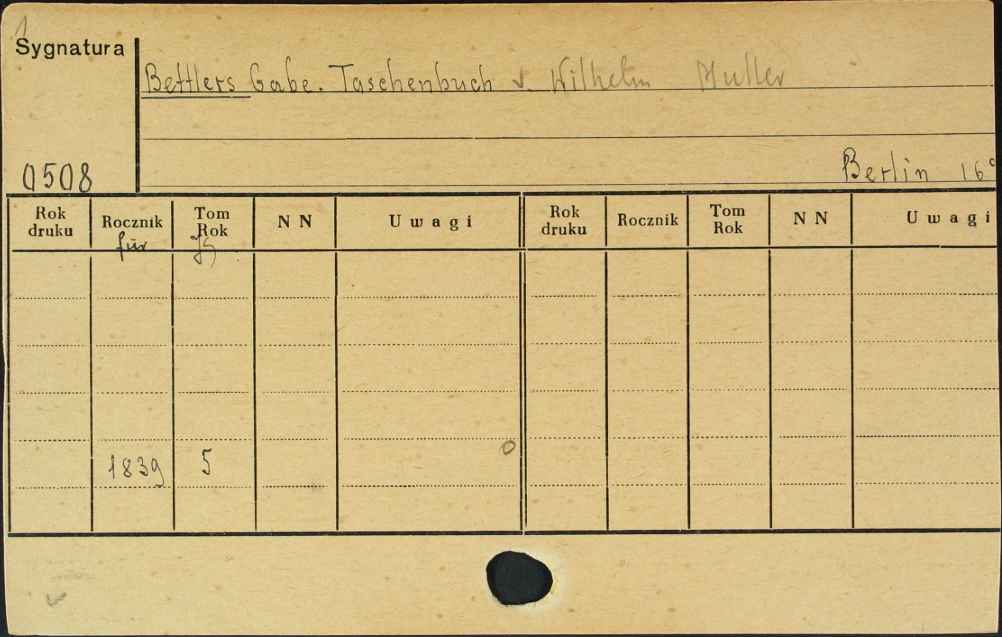 Sygnatura
Bettlers Gabe. Taschenbuch v. Wilhelm Müller
0508
Berlin 16°
Rok druku Rocznik Tom Rok NN Uwagi Rok druku Rocznik Tom Rok NN Uwagi
für Jg
1839 5